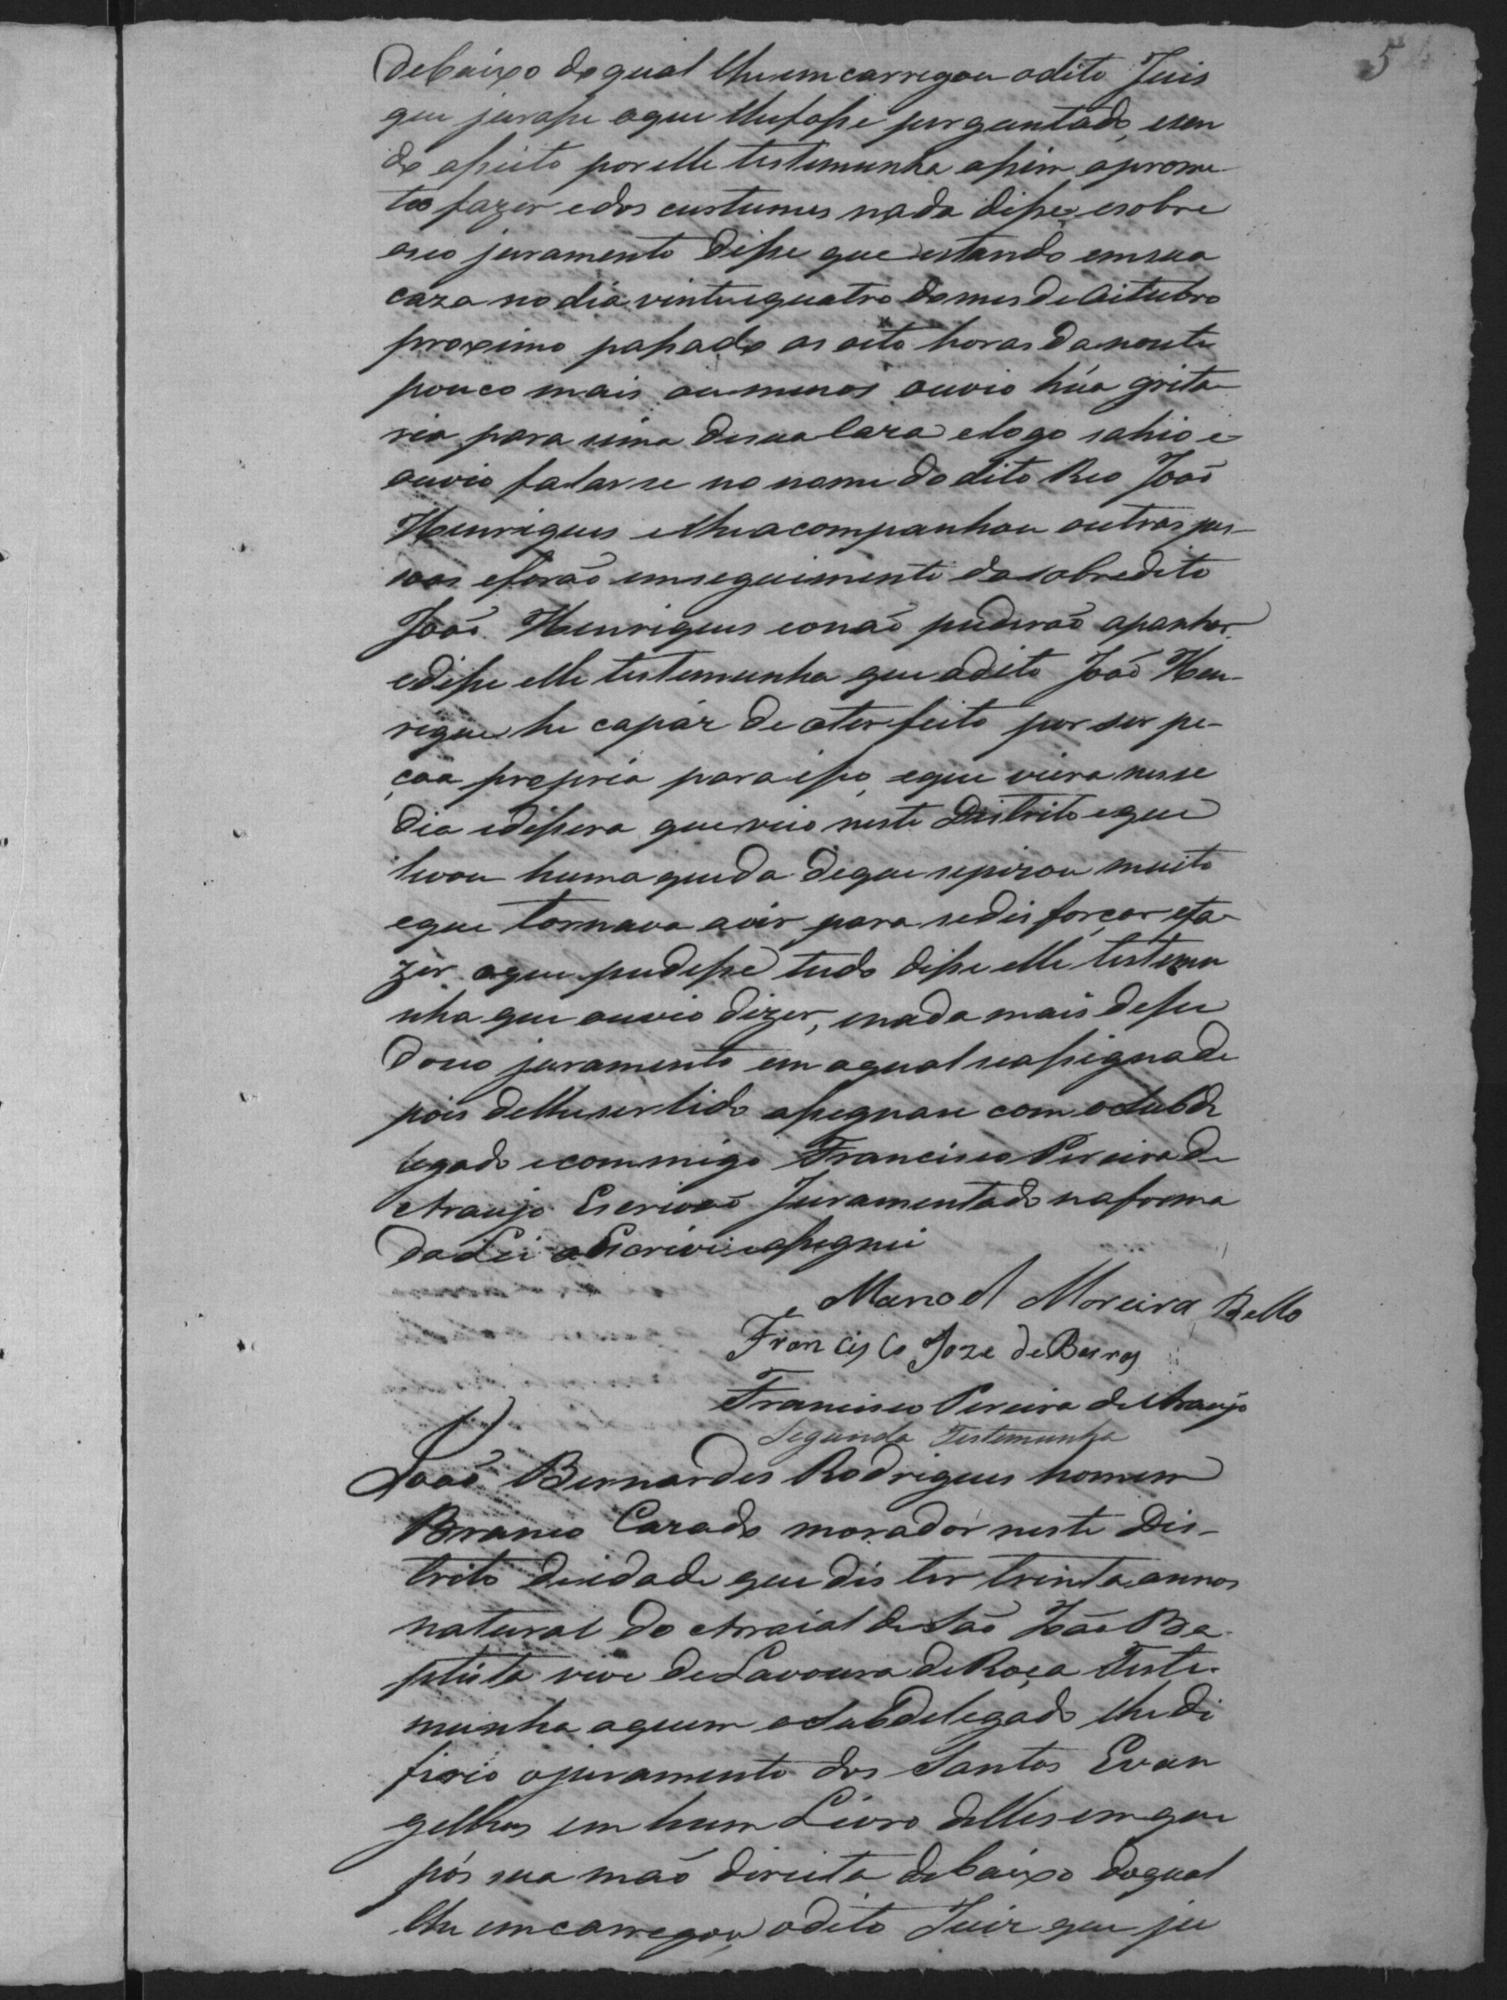 5
debaixo do qual lhe emcarregou o dito Juis
que jurasse o que lhe fosse perguntado, e sen
do aseito por elle testemunha assim a prome
teo fazer e dos custumes nada disse, e sobre
o seo juramento disse que estando em sua
caza no dia vinte e quatro do mes de Oitubro
proximo passado as oito horas da noute
pouco mais ou menos ouvio húa grita
ria para sima de sua Caza e logo sahio e
ouvio falar se no nome do dito Reo João
Henriques e lhe acompanhou outras pes-
soas e forão em seguimento do sobredito
João Henriques e o não puderão apanhar
e disse elle testemunha que o dito João Hen-
riques he capáz de o ter feito por ser pe-
çoa propria para isso, e que viera nesse
dia e dissera que veio neste Distrito e que
levou huma queda de que se pizou muito
e que tornava a vir para se disforçar e fa-
zer o que pudesse tudo disse elle testemu
nha que ouvio dizer, e nada mais disse
do seo juramento em a qual se assigna de
pois de lhe ser lido assegnase com o Subde
legado e commigo Francisco Pereira de
Araujo Escrivão Juramentado na forma
da Lei o Escrivi e assegnei
Manoel Moreira Bello
Francisco Joze de Barros
Francisco Pereira de Araujo
Segunda Testemunha
João Bernardes Rodrigues homem
Branco Cazado morador neste Dis-
trito de idade que dis ter trinta annos
natural do Arraial de São João Ba
ptista vive de Lavoura de Roça Teste-
munha a quem o Subdelegado lhe di
firio o juramento dos Santos Evan
gelhos em hum Livro delles em que
pós sua mão direita debaixo do qual
lhe emcarregou o dito Juiz que ju